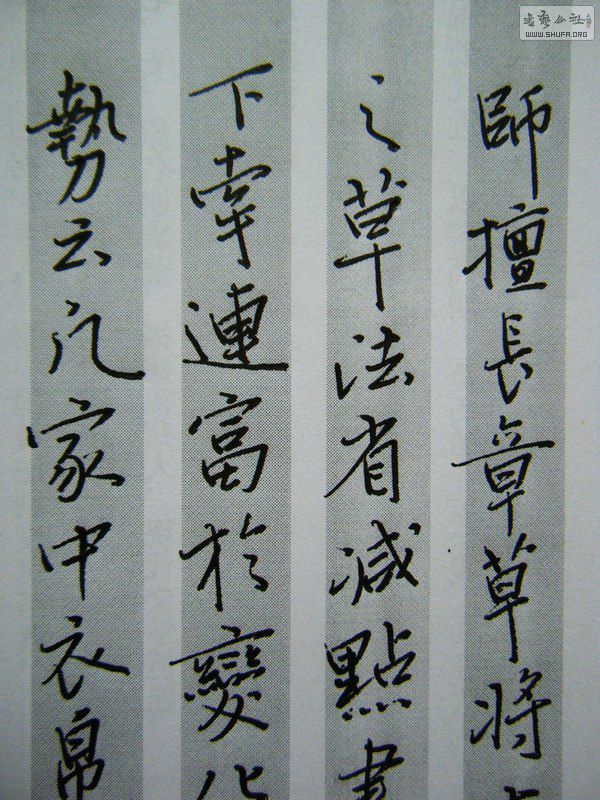 師擅長章草草将
之草法省减點畫
下牽連富於變化
勢云凡家中衣帛
書藝公社
WWW.SHUFA.ORG